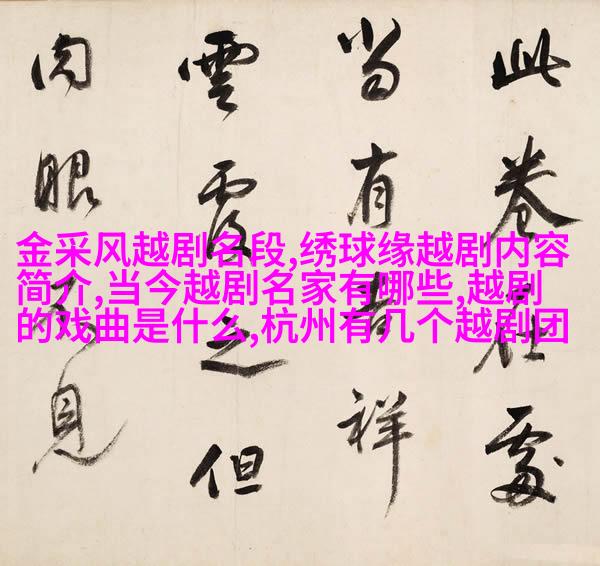 此卷在處
當有吉祥
雲覆之但
肉眼不見
金采风越剧名段,绣球缘越剧内容
简介,当今越剧名家有哪些,越剧
的戏曲是什么,杭州有几个越剧团